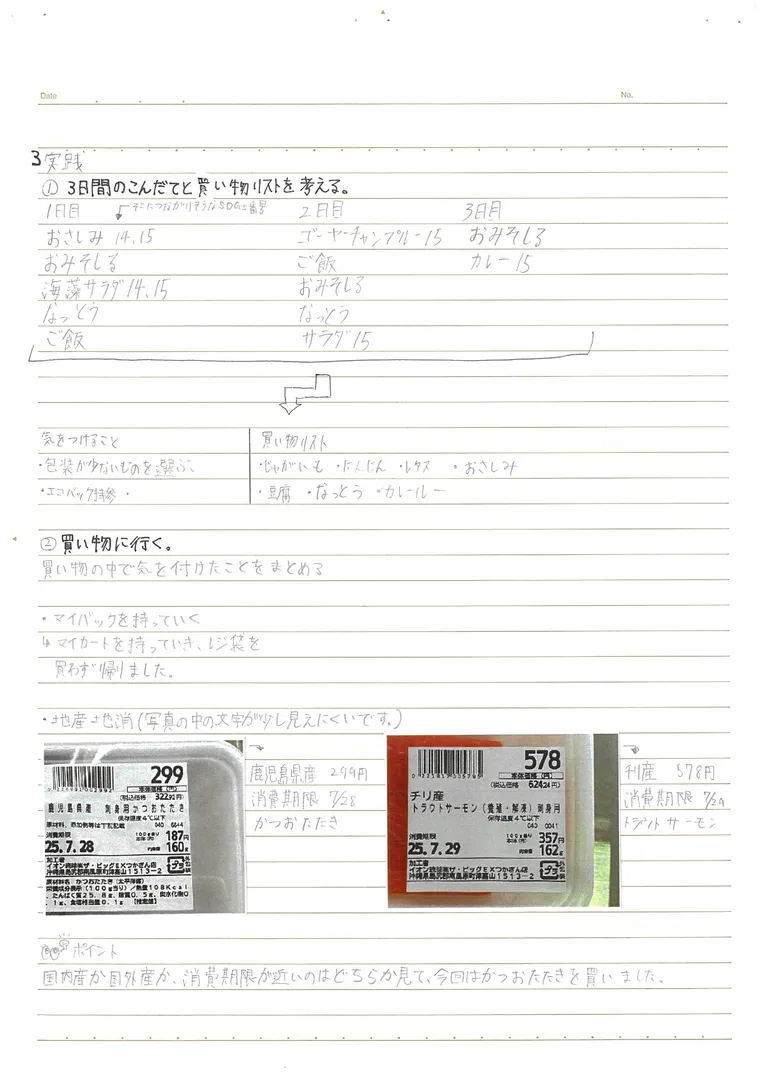 Date
No.
3 実践
① 3日間のこんだてと買い物リストを考える。
1日目 そこにつながりそうなSDGs番号 2日目 3日目
おさしみ 14,15 ゴーヤーチャンプルー15 おみそしる
おみそしる ご飯 カレー15
海藻サラダ14,15 おみそしる
なっとう なっとう
ご飯 サラダ15
気をつけること 買い物リスト
・包装が少ないものを選ぶ ・じゃがいも ・にんじん ・レタス ・おさしみ
・エコバック持参・ ・豆腐 ・なっとう ・カレールー
② 買い物に行く。
買い物の中で気を付けたことをまとめる
・マイバックを持っていく
↳マイカートを持っていき、レジ袋を
買わず帰りました。
・地産地消(写真の中の文字が少し見えにくいです。)
299
本体価格(円)
(税込価格 322.92円)
鹿児島県産 刺身用かつおたたき
保存温度4℃以下
原材料、添加物等は下記記載
040 6844
消費期限
25.7.28
100g当り
本体(円) 187円
内容量 160g
加工者
イオン琉球㈱ザ・ビッグEXつかざん店
沖縄県島尻郡南風原町津嘉山1513-2
原材料名 かつおたたき(太平洋産)
栄養成分表示(100g当り)/熱量108Kcal
、たんぱく質25.8g、脂質0.5g、炭水化物0
.1g、食塩相当量0.1g [推定値]
鹿児島県産 299円
消費期限 7/28
かつおたたき
578
本体価格(円)
(税込価格 624.24円)
チリ産
トラウトサーモン(養殖・解凍)刺身用
保存温度4℃以下
040 0041
消費期限
25.7.29
100g当り
本体(円) 357円
内容量 162g
加工者
イオン琉球㈱ザ・ビッグEXつかざん店
沖縄県島尻郡南風原町津嘉山1513-2
プラ
チリ産 578円
消費期限 7/29
トラウトサーモン
ポイント
国内産か国外産か、消費期限が近いのはどちらか見て、今回はかつおたたきを買いました。